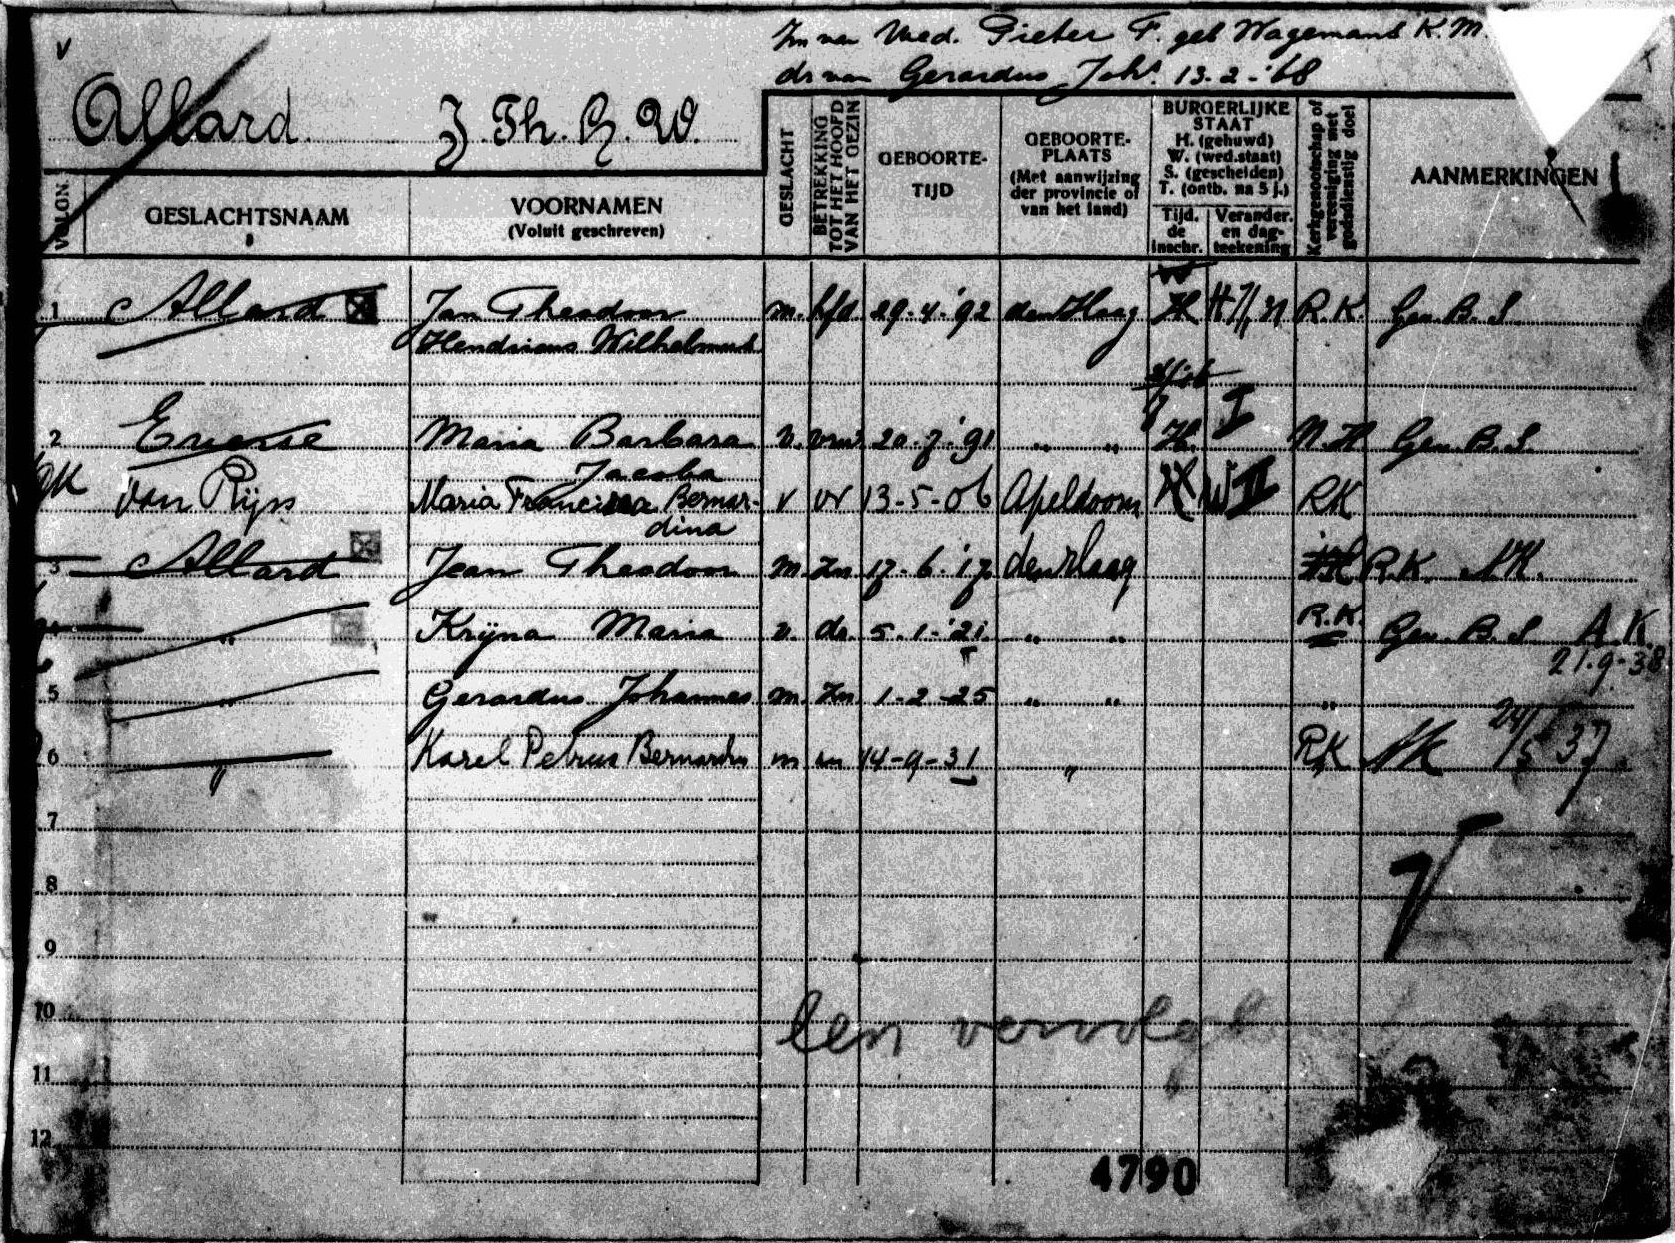 Zn van Wed. Pieter F. geb Wagemans K.M.
dr van Gerardus Joh^s. 13.2-'68
Allard. J. Th. H. W.
VOLGN.
GESLACHTSNAAM
VOORNAMEN
(Voluit geschreven)
GESLACHT
BETREKKING TOT HET HOOFD VAN HET GEZIN
GEBOORTE-TIJD
GEBOORTE-PLAATS
(Met aanwijzing der provincie of van het land)
BURGERLIJKE STAAT
H. (gehuwd)
W. (wed.staat)
S. (gescheiden)
T. (ontb. na 5 j.)
Tijd. de inschr.
Verander. en dag-teekening
Kerkgenootschap of vereeniging met godsdienstig doel
AANMERKINGEN
1 Allard Jan Theodoor m. hfd 29-4-'92 den Haag H R.K. Gen. B. S.
Hendricus Wilhelmus
2 Maria Barbara v. vrw 20-7-'91 " " H. N.H Gen. B. S.
Jacoba
van Rijn Maria Francisca Bernar- v vr 13-5-06 Apeldoorn W II RK
dina
3 Allard Jean Theodoor m. zn 17-6-'17 den Haag R.K. NK.
4 " Krijna Maria v. dr. 5.1-'21. " " R.K. Gen. B. S A.K.
21.9-38
5 " Gerardus Johannes m. zn 1-2-25 " " "
6 " Karel Petrus Bernardus m zn 14-9-31 " RK NK 24/5 37
7
8
9
10
Een vervolgt
11
12
4790